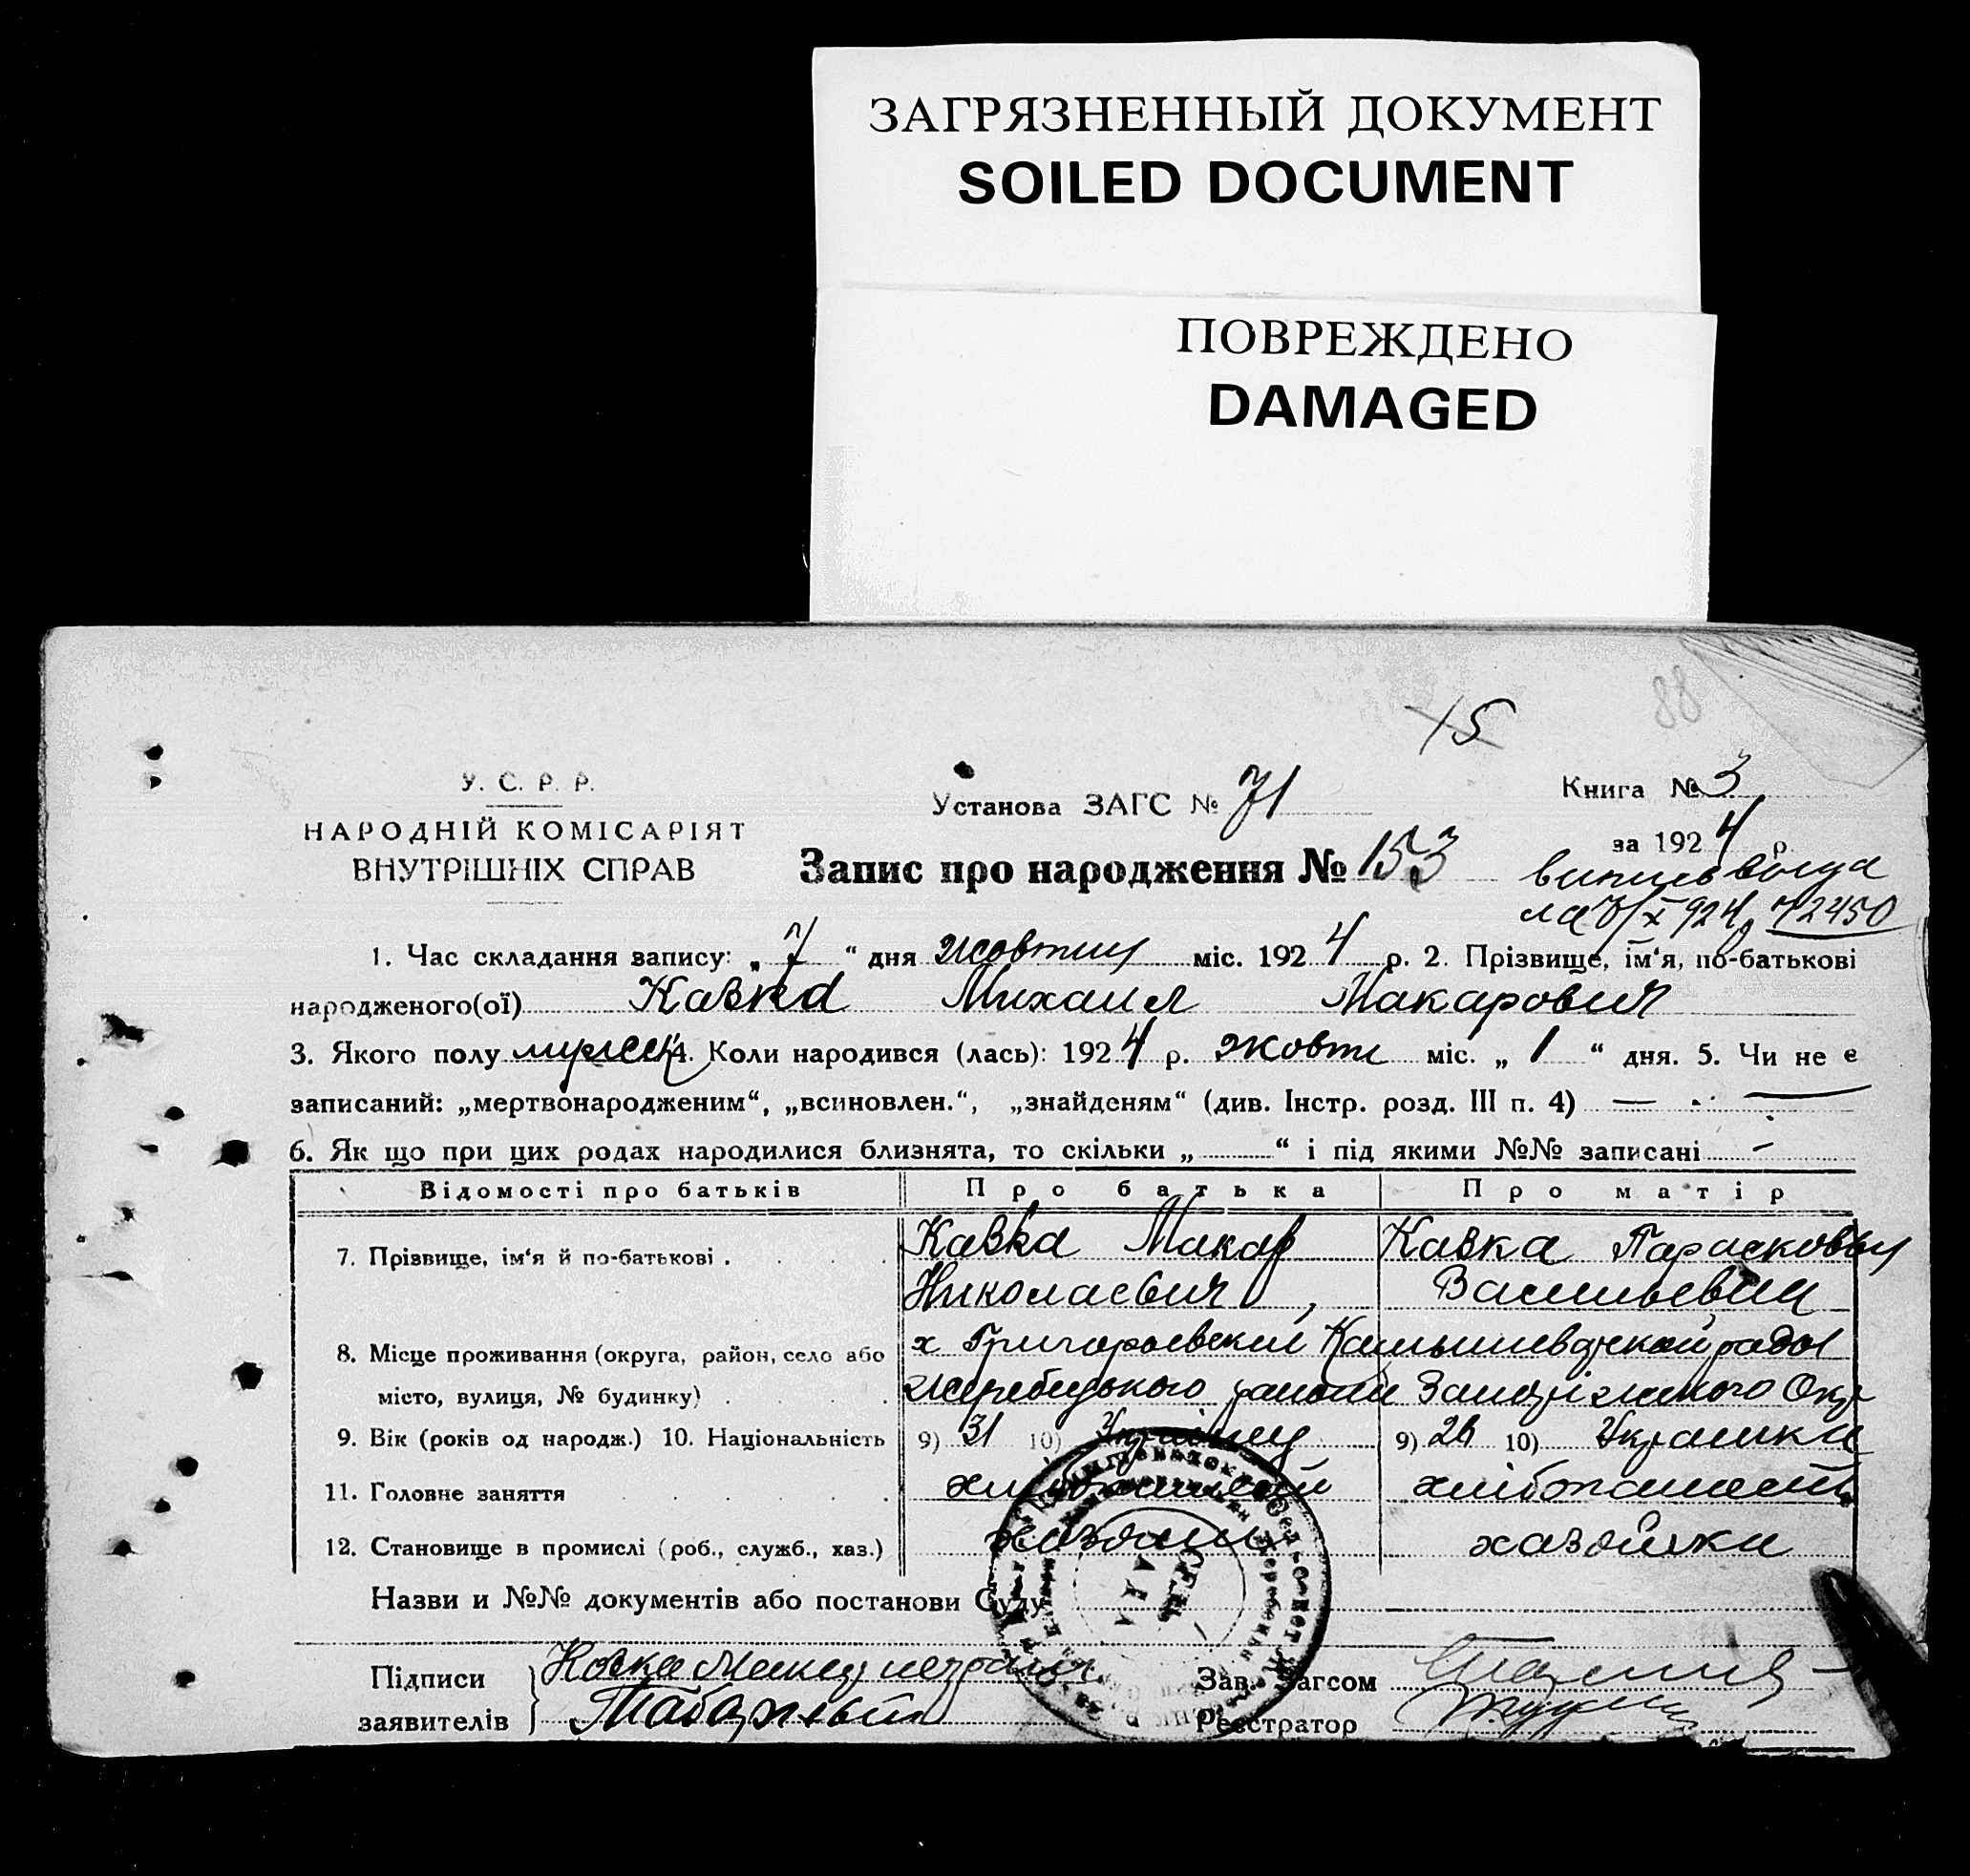 ЗАГРЯЗНЕННЫЙ ДОКУМЕНТ
SOILED DOCUMENT
ПОВРЕЖДЕНО
DAMAGED
88
15
У. С. Р. Р.
НАРОДНІЙ КОМІСАРІЯТ
ВНУТРІШНІХ СПРАВ
Установа ЗАГС № 71
Запис про народження № 153
Книга № 3
за 1924 р.
выпись выда
на 7/X 924, 42450
1. Час складання запису: „ 7 “ дня жовтня міс. 1924 р. 2. Прізвище, ім‘я, по-батькові
народженого(ої) Кавка Михаил Макарович
3. Якого полу мужск 4. Коли народився (лась): 1924 р. жовтн міс. „ 1 “ дня. 5. Чи не є
записаний: „мертвонародженим“, „всиновлен.“, „знайденям“ (див. Інстр. розд. III п. 4) —
6. Як що при цих родах народилися близнята, то скільки „ “ і під якими №№ записані —
Відомості про батьків Про батька Про матір
7. Прізвище, ім‘я й по-батькові . Кавка Макар Кавка Парасковья
Николаевич, Васильевна
8. Місце проживання (округа, район, село або х Григорьевский
місто, вулиця, № будинку) Жеребецького района Запоріжжкого Окр
9. Вік (років од народж.) 10. Національність 9) 31 10) Украінец 9) 26 10) Украинка
11. Головне заняття хліборобство хліборобство
12. Становище в промислі (роб., служб., хаз.) хазяин хазяйка
Назви и №№ документів або постанови Суду
Підписи Кавка Макар неграмот
заявителів
Зав. Загсом
Реєстратор